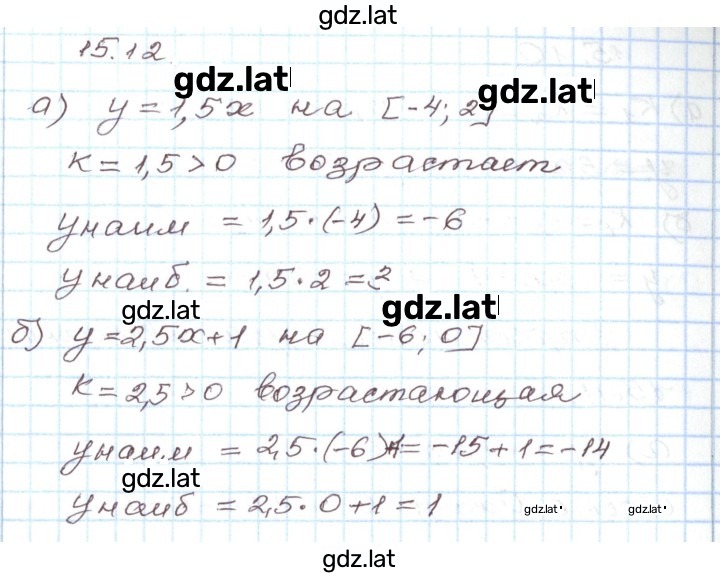 gdz.lat
15.12
gdz.lat
gdz.lat
а) y = 1,5x на [-4; 2]
к = 1,5 > 0 возрастает
yнаим = 1,5·(-4) = -6
yнаиб. = 1,5·2 = 3
gdz.lat
gdz.lat
б) y = 2,5x + 1 на [-6; 0]
к = 2,5 > 0 возрастающая
yнаим = 2,5·(-6)+1 = -15 + 1 = -14
gdz.lat
yнаиб = 2,5·0 + 1 = 1
gdz.lat
gdz.lat
gdz.lat